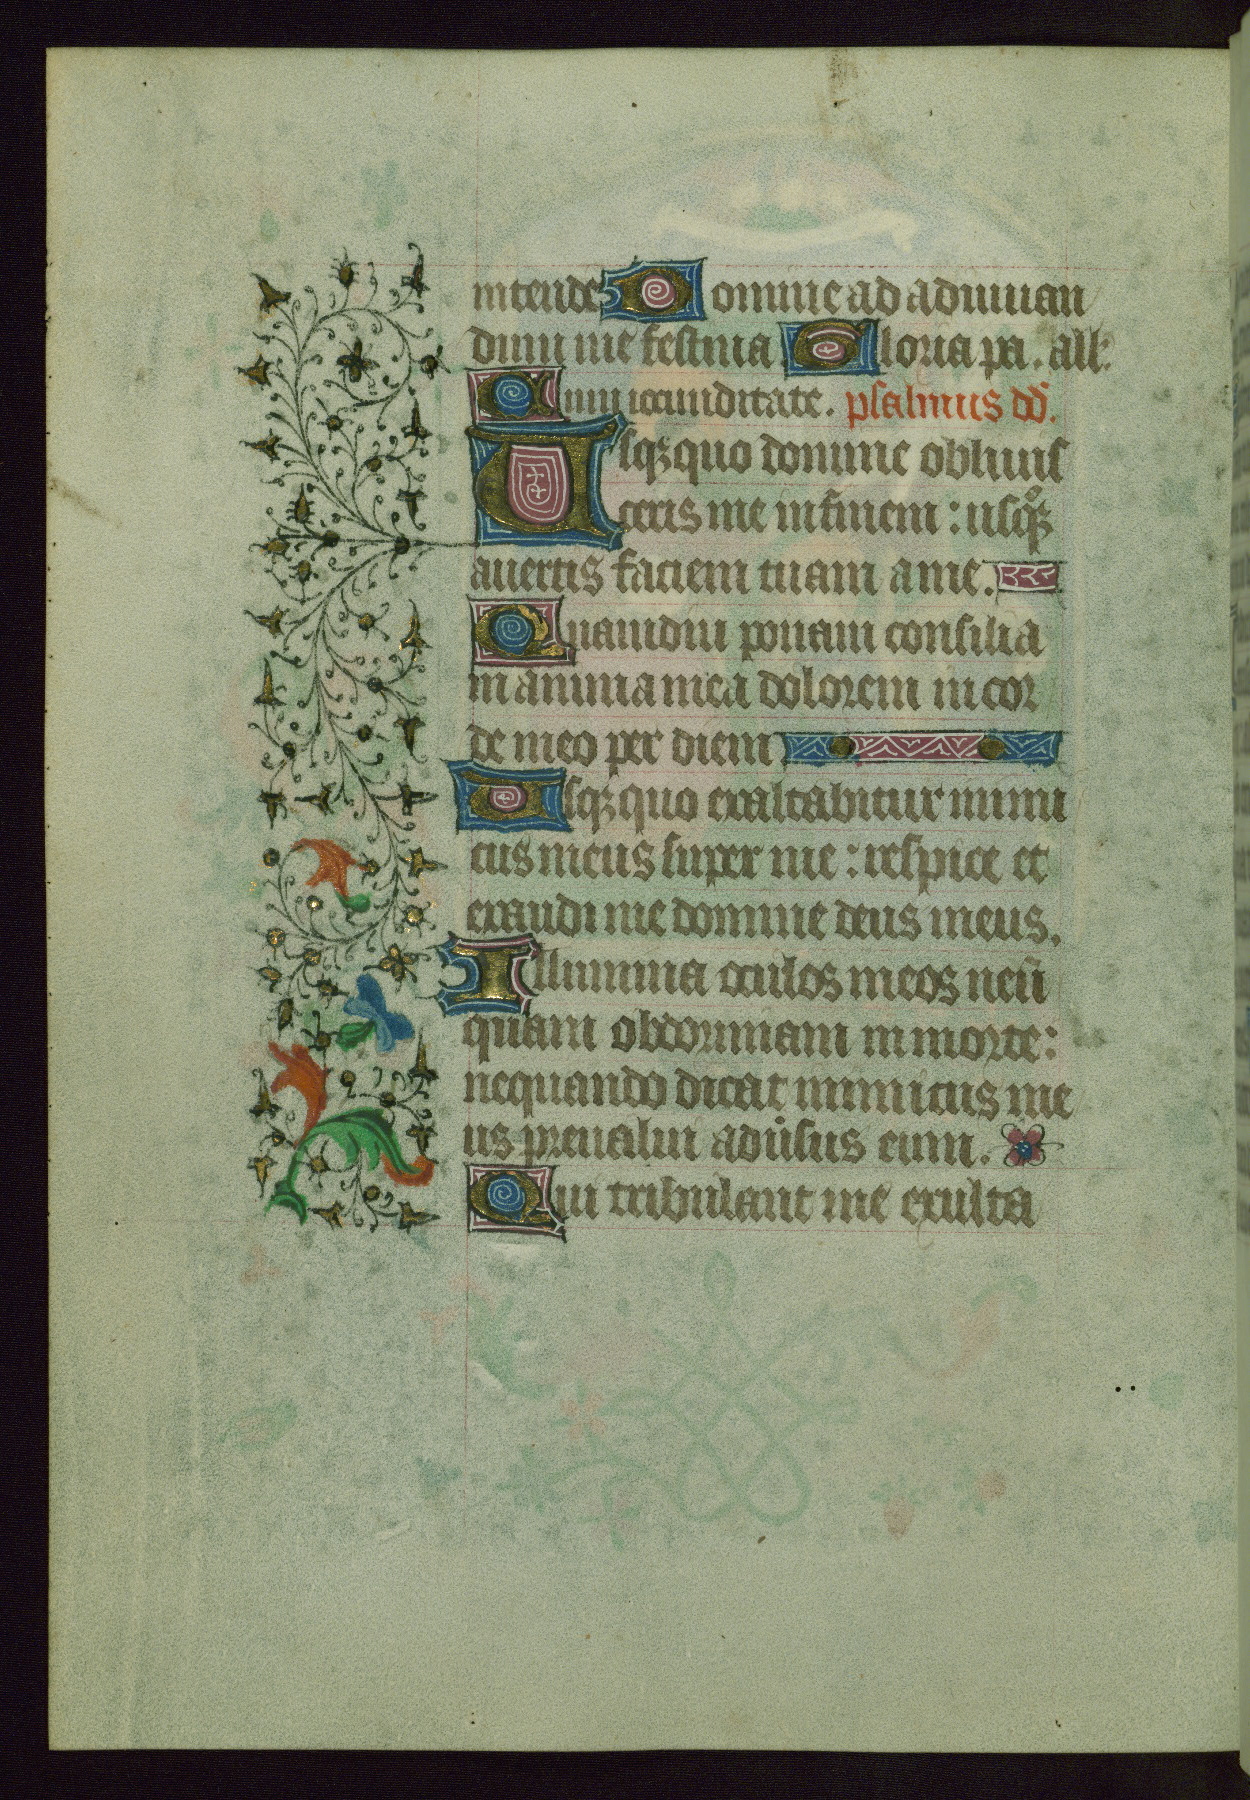 intende Domine ad adiuuan
dum me festina Gloria pa. all'.
Cum iocunditate. psalmus dd̄.
Usqꝫquo domine obliuis
ceris me in finem : usqꝫ̊
auertis faciem tuam a me.
Quamdiu ponam consilia
in anima mea dolorem in cor
de meo per diem
Usqꝫquo exaltabitur inimi
cus meus super me : respice et
exaudi me domine deus meus.
Illumina oculos meos neū
quam obdormiam in morte :
nequando dicat inimicus me
us preualui adu̾sus eum.
Qui tribulant me exulta